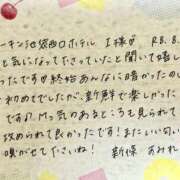 ーキン池袋西口ホテル I様 R8.8.
と気になってたさっていたと聞いて嬉し
ったです 終始あんなに暗かったのし
初めてでしたが、新鮮で楽しかっ
です。Mっ気のあるところも見られて
攻められて良かったです！またいい匂い
嗅がせて下さいね！
新條 あみれ